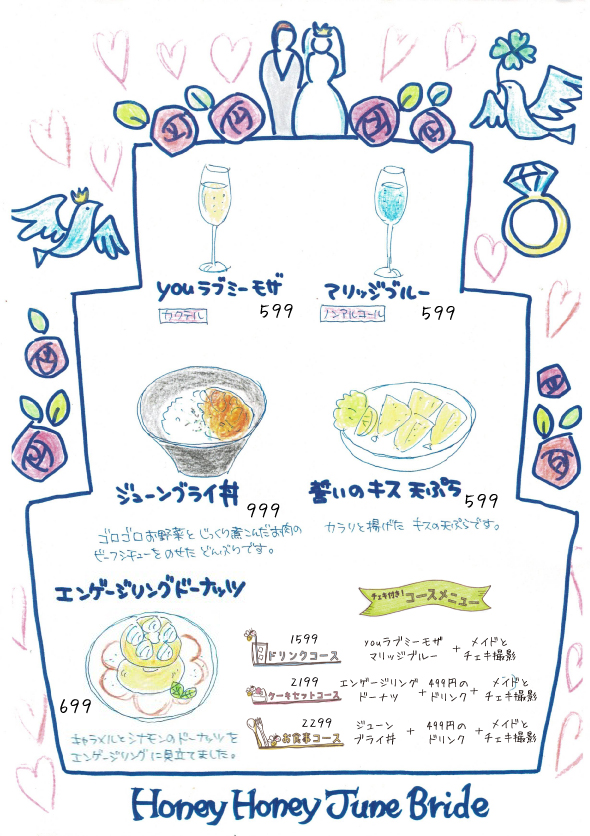 youラブミーモザ
カクテル 599
マリッジブルー
ノンアルコール 599
ジューンブライ丼
999
ゴロゴロお野菜とじっくり煮こんだお肉の
ビーフシチューをのせたどんぶりです。
誓いのキス天ぷら
599
カラリと揚げた キスの天ぷらです。
エンゲージリングドーナッツ
699
キャラメルとシナモンのドーナッツを
エンゲージリングに見立てました。
チェキ付き!コースメニュー
1599
ドリンクコース
youラブミーモザ
マリッジブルー
+
メイドと
チェキ撮影
2199
ケーキセットコース
エンゲージリング
ドーナツ
+
499円の
ドリンク
+
メイドと
チェキ撮影
2299
お食事コース
ジューン
ブライ丼
+
499円の
ドリンク
+
メイドと
チェキ撮影
Honey Honey June Bride